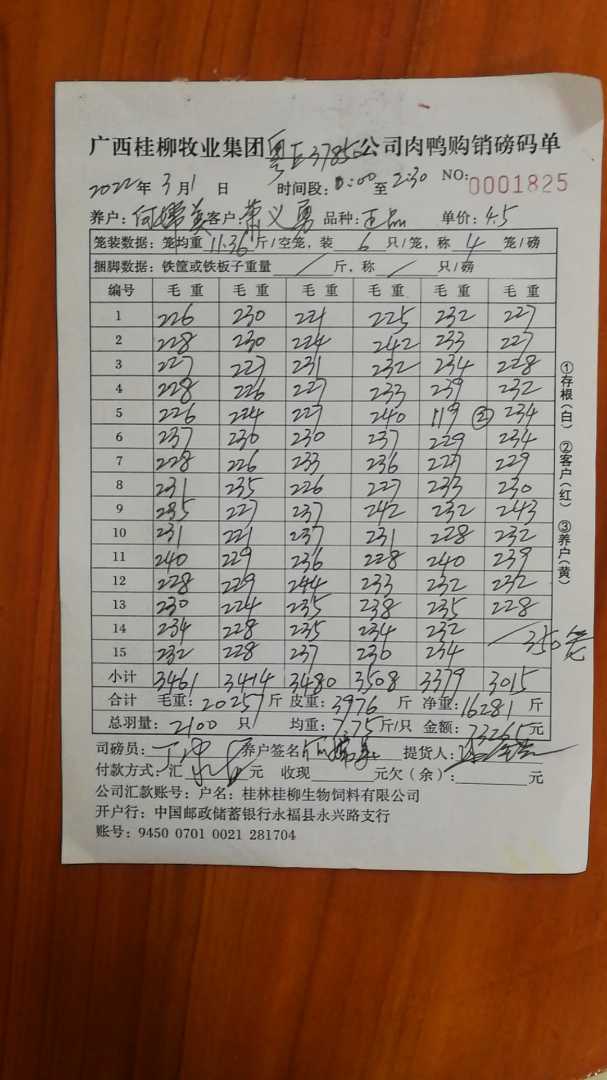 广西桂柳牧业集团粤E3785公司肉鸭购销磅码单
2022年3月1日 时间段:0:00至2:30 NO:0001825
养户:何 英 客户:萧义勇 品种:正品 单价:4.5
笼装数据:笼均重11.36斤/空笼,装6只/笼,称4笼/磅
捆脚数据:铁筐或铁板子重量/斤,称/只/磅
编号 毛重 毛重 毛重 毛重 毛重 毛重
1 226 230 221 225 232 227
2 228 230 224 242 233 227
3 227 227 231 232 234 228
4 228 226 227 233 239 232
5 226 224 227 240 119 ② 234
6 237 230 230 237 229 234
7 228 226 233 236 227 229
8 231 235 226 227 233 230
9 235 227 237 242 232 243
10 231 221 237 231 228 232
11 240 229 236 228 240 239
12 228 229 244 233 232 232
13 230 224 235 238 235 228
14 234 228 235 234 232
15 232 228 237 230 234
350笼
小计 3461 3414 3480 3508 3379 3015
合计 毛重:20257斤 皮重:3976斤 净重:16281斤
总羽量:2100只 均重:7.75斤/只 金额:73265元
司磅员: 养户签名: 提货人:
付款方式:汇 元 收现 元欠(余): 元
公司汇款账号:户名:桂林桂柳生物饲料有限公司
开户行:中国邮政储蓄银行永福县永兴路支行
账号:9450 0701 0021 281704
①存根(白) ②客户(红) ③养户(黄)